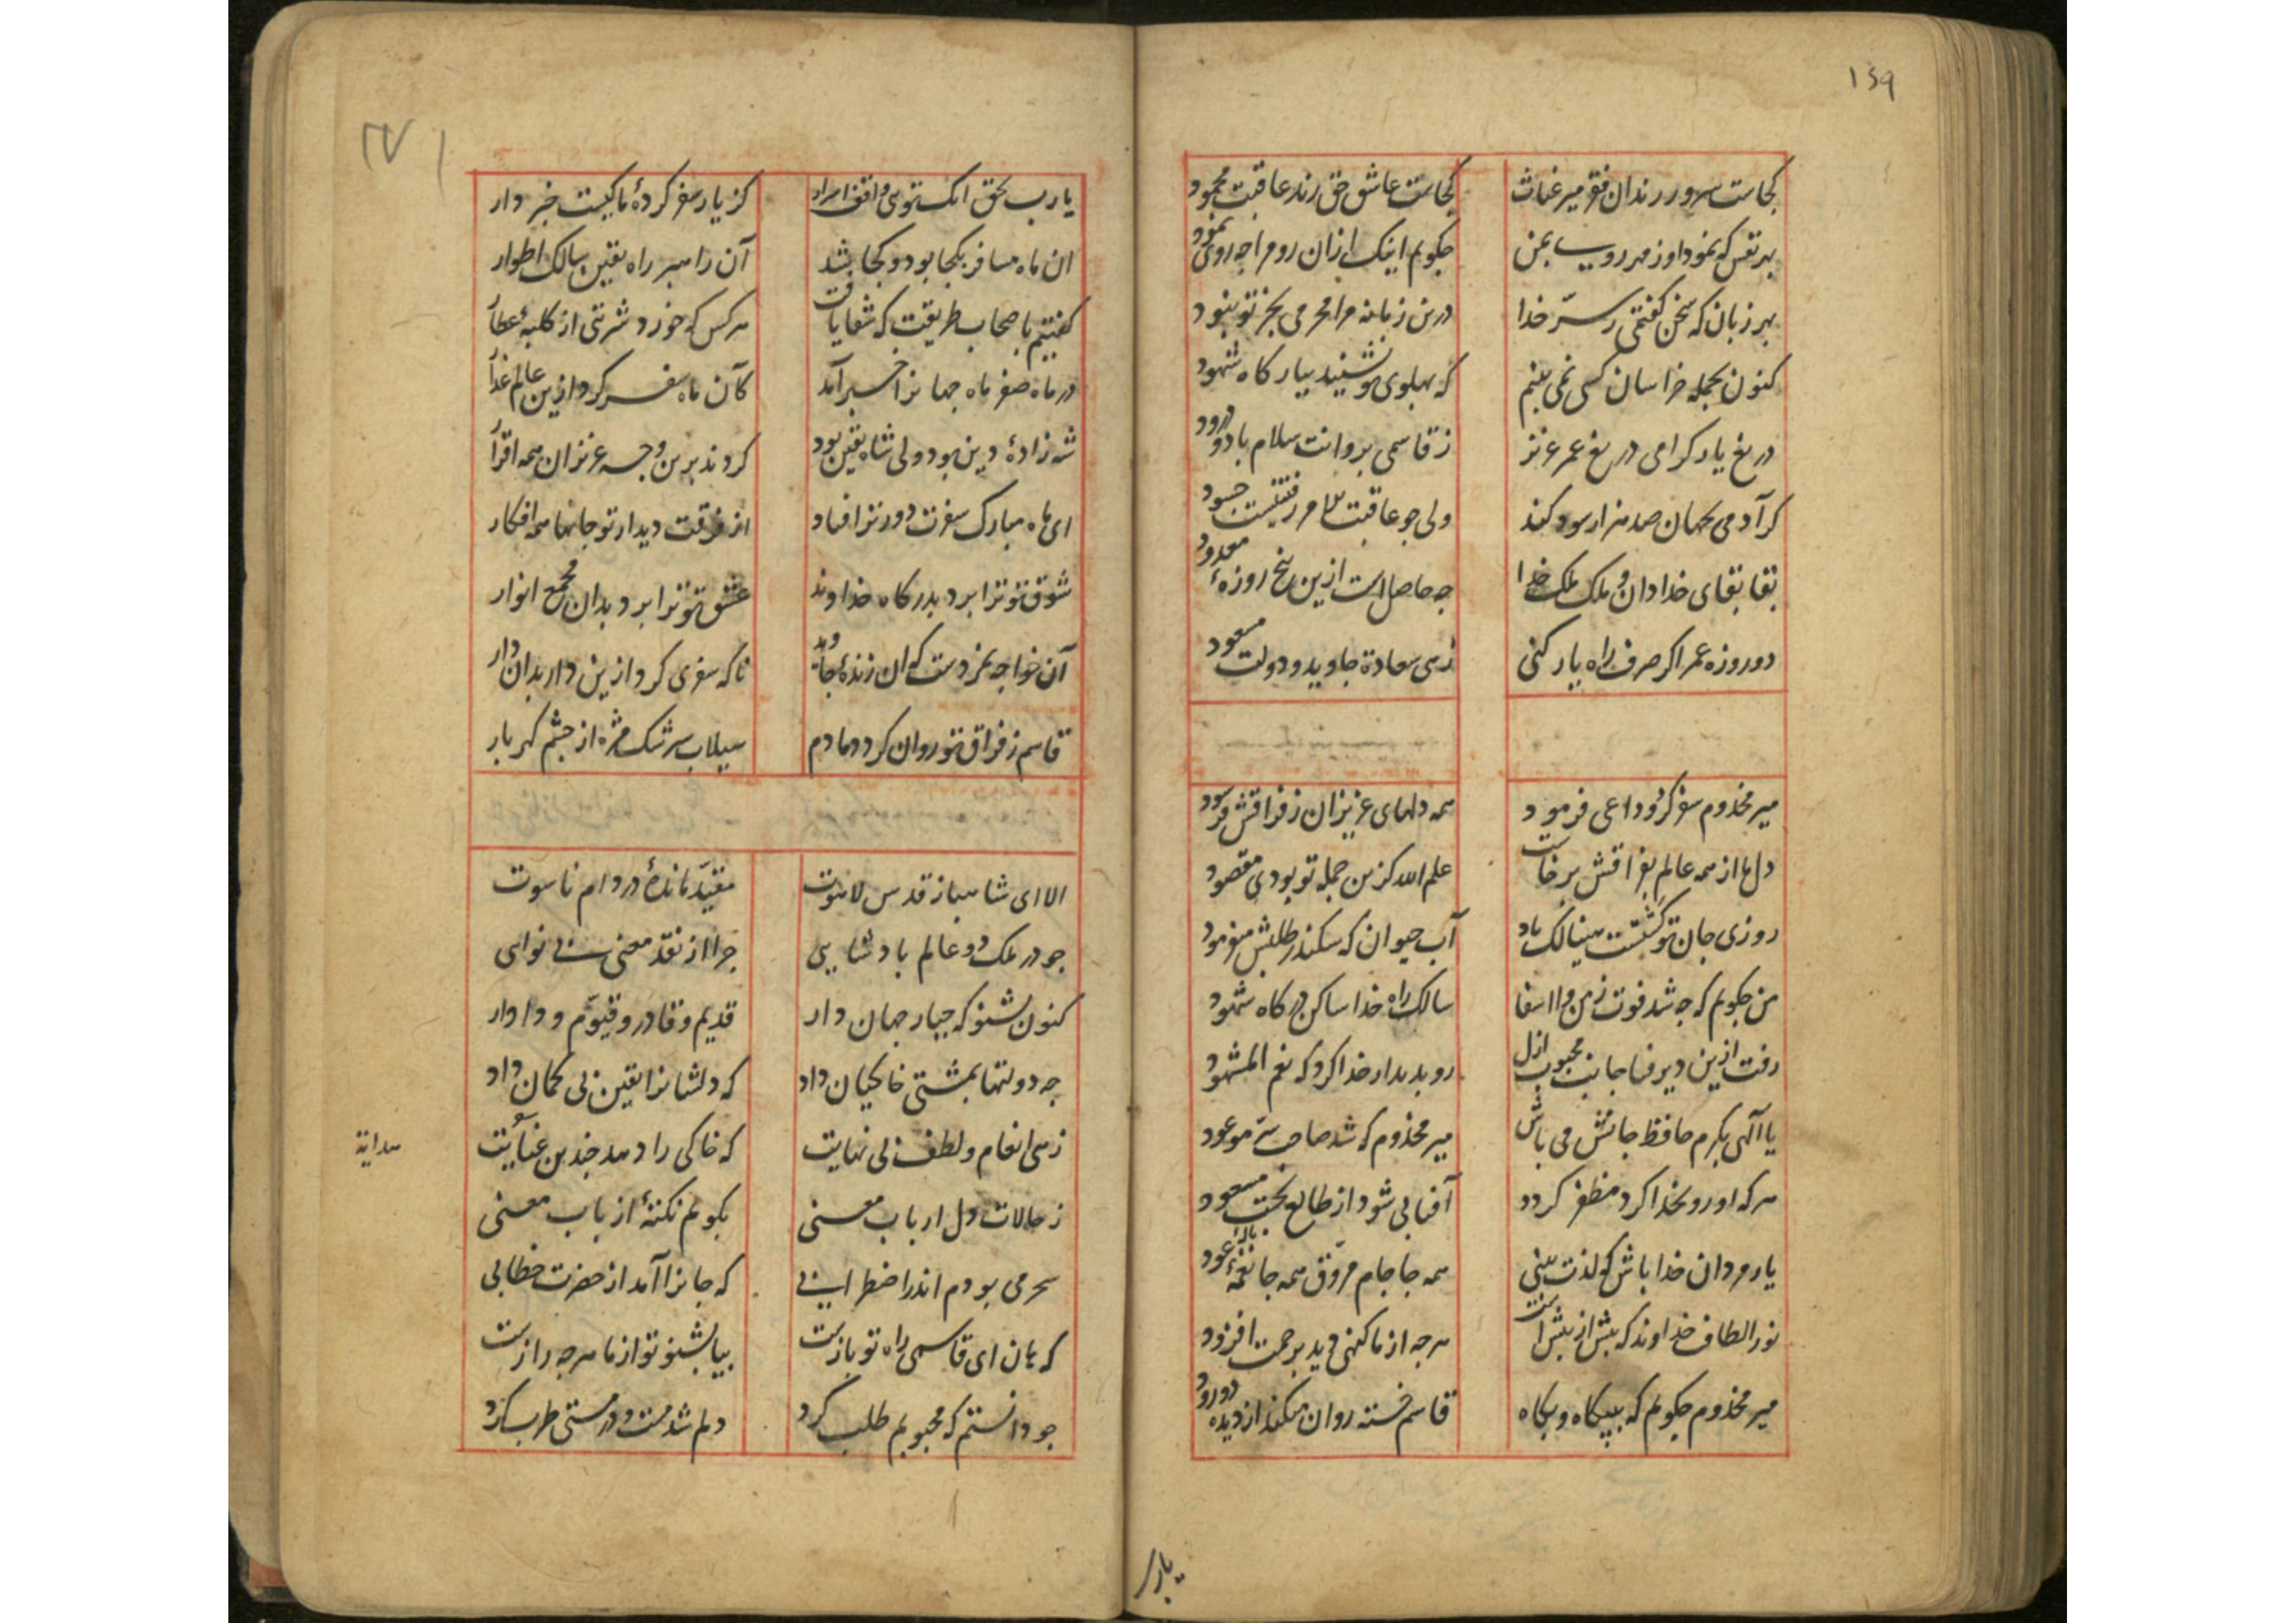 ۱۶۹
کجاست سرور رندان فقر میر غیاث کجاست عاشق حق رند عاقبت محمود
بهر نفس که نمود او ز مهر رویی بمن چکویم اینک ازان رو مرا چه روی نمود
بهر زبان که سخن کفتمی ز سرّ خدا درین زمانه مرا محرمی بجز تو نبود
کنون بجمله خراسان کسی نمی بینم که پهلوی تو نشیند ببارکاه شهود
دریغ یار کرامی دریغ عمر عزیز ز قاسمی بروانت سلام باد و درود
کر آدمی بجهان صد هزار سود کند ولی چو عاقبت الامر رفتنیست چه سود
بقا بقای خدا دان و ملک ملک خدا چه حاصل است ازین پنج روزهٔ معدود
دو روزه عمر اکر صرف راه یار کنی زهی سعادة جاوید و دولت مسعود
میر مخدوم سفر کرد و وداعی فرمود همه دلهای عزیزان ز فراقش فرسود
دل ما از همه عالم بفراقش برخاست علم الله کزین جمله تو بودی مقصود
روزی جان تو کشتست هنیالک باد آب حیوان که سکندر طلبش میفرمود
من چکویم که چه شد فوت ز من وا اسفا سالک راه خدا ساکن درکاه شهود
رفت ازین دیر فنا جانب محبوب ازل رو بدیدار خدا کرد که نعم المشهود
یا الهی بکرم حافظ جانش می باش میر مخدوم که شد صاحب سرّ موعود
هر که او رو بخدا کرد مظفر کردد آفتابی شود از طالع بخت مسعود
یار مردان خدا باش که لذت بینی همه جا جام مروّق همه جا نغمهٔ عود
نور الطاف خداوند که بیش از بیش است هرچه از ما کنهی دید برحمت افزود
میر مخدوم چکویم که ببیکاه و بکاه قاسم خسته روان میکند از دیده دو رود
یارب
یا رب بحق آنک توی واقف اسرار کز یار سفر کردهٔ ما کیست خبر دار
ان ماه مسافر بکجا بود و کجا شد آن راهبر راه یقین سالک اطوار
کفتیم باصحاب طریقت که شفا یافت هر کس که خورد شربتی از کلبهٔ عطار
در ماه صفر ماه جهانرا خبر آمد کآن ماه سفر کرد ازین عالم غدار
شه زادهٔ دین بود ولی شاه یقین بود کردند برین وجه عزیزان همه اقرار
ای ماه مبارک سفرت دور تر افتاد از فرقت دیدار تو جانها همه افکار
شوق تو ترا برد بدرکاه خداوند عشق تو ترا برد بدان مجمع انوار
آن خواجه نمردست که ان زندهٔ جاوید ناکه سفری کرد ازین دار بدان دار
قاسم ز فراق تو روان کرد دمادم سیلاب سرشک مژه از چشم کهربار
الا ای شاهباز قدس لاهوت مقیّد ماندهٔ در دام ناسوت
چو در ملک دو عالم پادشایی چرا از نقد معنی بی نوایی
کنون بشنو که جبار جهان دار قدیم و قادر و قیّوم و دادار
چه دولتها بمشتی خاکیان داد که دلشانرا یقین بی کمان داد
زهی انعام و لطف بی نهایت که خاکی را دهد چندین عنایت
هدایة
ز حالات دل ارباب معنی بکویم نکتهٔ از باب معنی
سحر می بودم اندر اضطرابی که جانرا آمد از حضرت خطابی
که هان ای قاسمی راه تو بازست بیا بشنو تو از ما هرچه رازست
چو دانستم که محبوبم طلب کرد دلم شد مست و در مستی طرب کرد